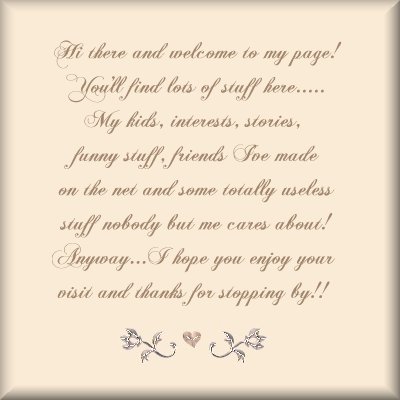 Hi there and welcome to my page!
You'll find lots of stuff here.....
My kids, interests, stories,
funny stuff, friends I've made
on the net and some totally useless
stuff nobody but me cares about!
Anyway...I hope you enjoy your
visit and thanks for stopping by!!